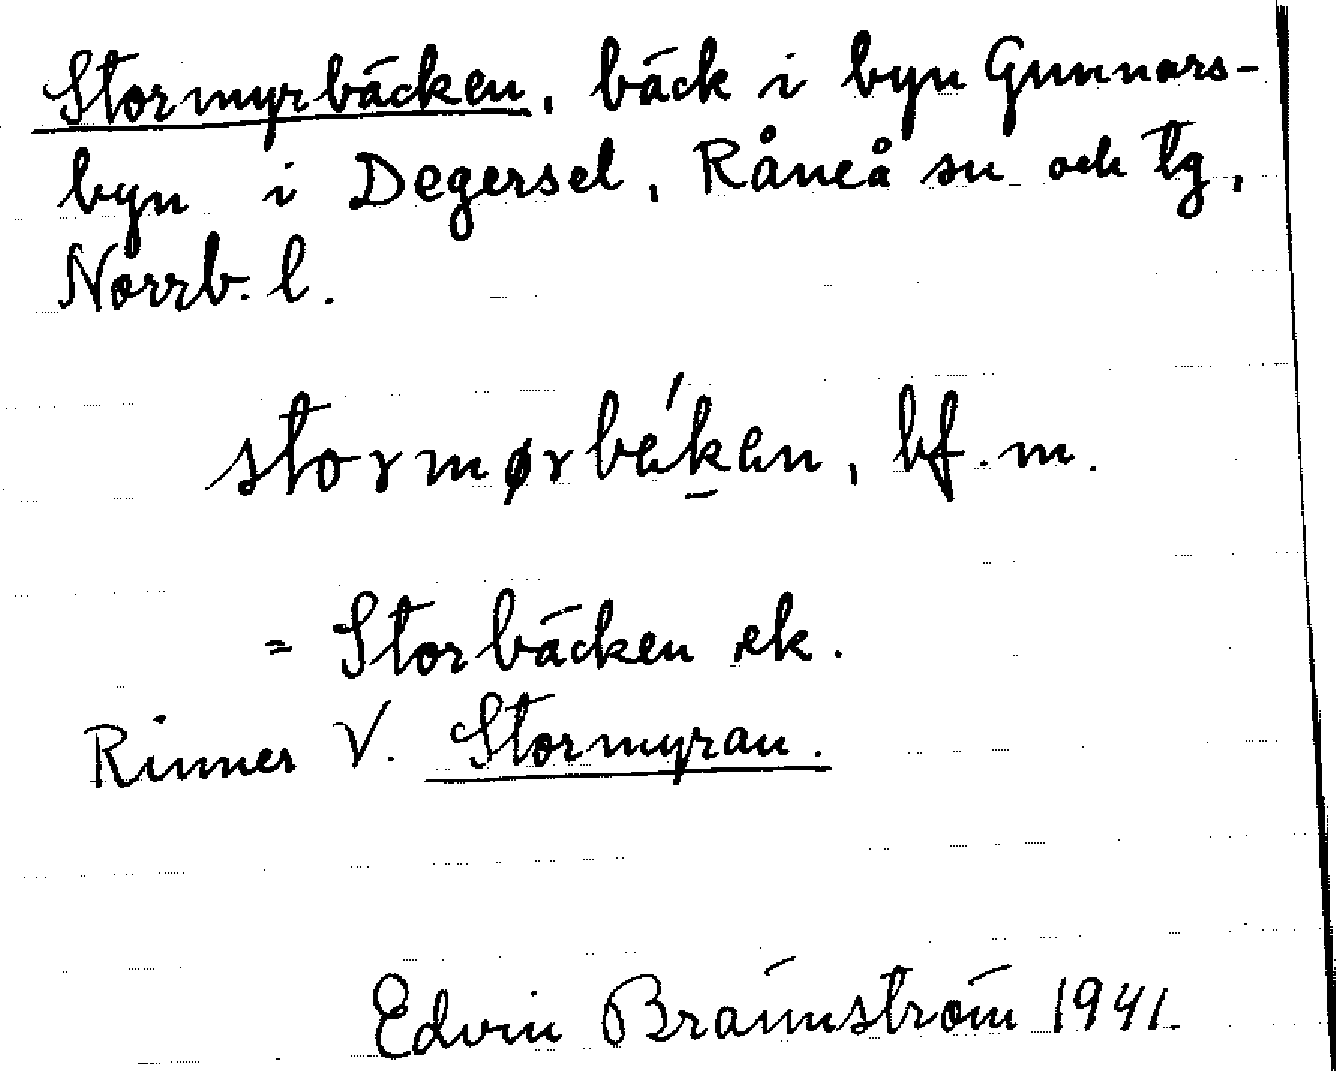 Stormyrbäcken, bäck i byn Gunnars-
byn i Degersel, Råneå sn och tg,
Norrb. l.
stormørbék̲en, bf. m.
= Storbäcken ek.
Rinner V. Stormyran.
Edvin Brännström 1941.